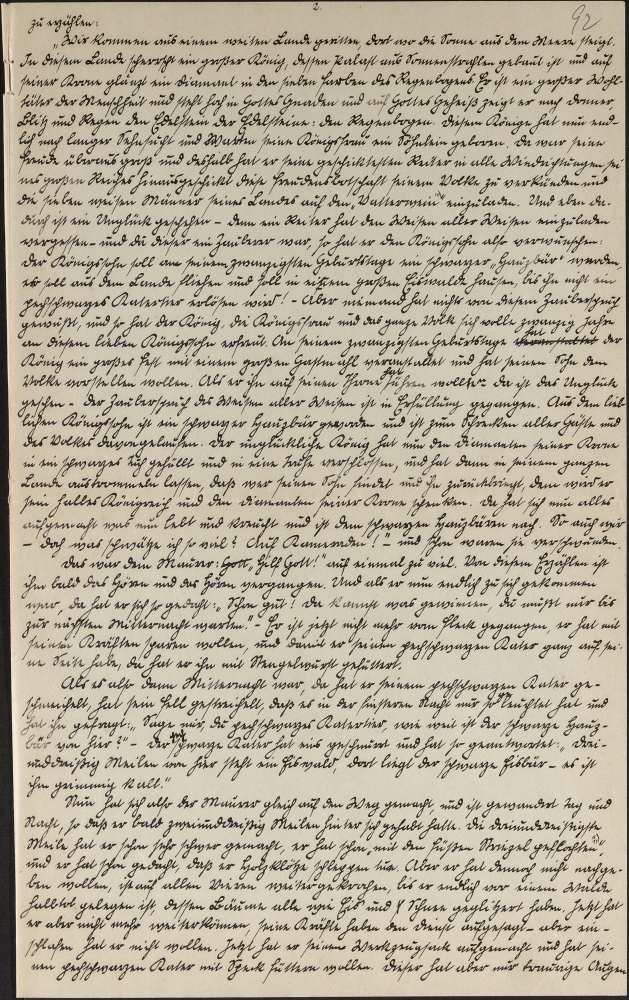 2.
92
zu erzählen:
„Wir kommen aus einem weiten Lande geritten, dort wo die Sonne aus dem Meere steigt.
In diesem Lande herrscht ein großer König, dessen Palast aus Sonnenstrahlen gebaut ist und auf
seiner Krone glänzt ein Diamant in den sieben Farben des Regenbogens. Er ist ein großer Wohl-
täter der Menschheit und steht hoch in Gottes Gnaden und auf Gottes Geheiß zeigt er nach Donner,
Blitz und Regen den Edelstein der Edelsteine: den Regenbogen. Diesem Könige hat nun end-
lich nach langer Sehnsucht und Warten seine Königsfrau ein Söhnlein geboren. Da war seine
Freude überaus groß und deshalb hat er seine geschicktesten Reiter in alle Windrichtungen sei
nes großen Reiches hinausgeschickt diese Freudensbotschaft seinem Volke zu verkünden und
die sieben weisen Männer seines Landes auf den „Vatterwein“ einzuladen. Und eben da-
durch ist ein Unglück geschehen – denn ein Reiter hat den Weisen aller Weisen einzuladen
vergessen – und da dieser ein Zauberer war, so hat er den Königssohn also verwunschen:
Der Königssohn soll an seinem zwanzigsten Geburtstage ein schwarzer „Hauzbär“ werden,
er soll aus dem Lande fliehen und soll in einem großen Eiswalde hausen, bis ihn nicht ein
pechschwarzes Katertier erlösen wird! – Aber niemand hat nichts von diesem Zauberspruch
gewußt, und so hat der König, die Königsfrau und das ganze Volk sich volle zwanzig Jahre
an diesem lieben Königssohn erfreut. An seinem zwanzigsten Geburtstage hat der
König ein großes Fest mit einem großen Gastmahl veranstaltet und hat seinen Sohn dem
Volke vorstellen wollen. Als er ihn auf seinen Thron hat führen wollen da ist das Unglück
geschehen – der Zauberspruch des Weisen aller Weisen ist in Erfüllung gegangen. Aus dem lieb-
lichen Königssohn ist ein schwarzer Hauzbär geworden und ist zum Schrecken aller Gäste und
des Volkes davongelaufen. Der unglückliche König hat nun den Diamanten seiner Krone
in ein schwarzes Tuch gehüllt und in eine Truhe verschlossen, und hat dann in seinem ganzen
Lande austrommeln lassen, daß wer seinen Sohn findet und ihn zurückbringt, dem wird er
sein halbes Königreich und den Diamanten seiner Krone schenken. Da hat sich nun alles
aufgemacht was nur lebt und kreucht und ist dem schwarzen Hauzbären nach. So auch wir
– doch was schwätze ich so viel? Auf Kameraden!“ – und schon waren sie verschwunden.
Das war dem Maurer: Gott, hilf Gott!“ auf einmal zu viel. Von diesem Erzählen ist
ihm bald das Hören und das Hören vergangen. Und als er nun endlich zu sich gekommen
war, da hat er sich so gedacht: „Schon gut! Da kannst was gewinnen, du mußt nur bis
zur nächsten Mitternacht warten.“ – Er ist jetzt nicht mehr vom Fleck gegangen, er hat mit
seinen Kräften sparen wollen, und damit er seinen pechschwarzen Kater ganz auf sei-
ne Seite habe, da hat er ihn mit Stengelwurst gefüttert.
Als es also dann Mitternacht war, da hat er seinem pechschwarzen Kater ge-
schmeichelt, hat sein Fell gestreichelt, daß es in der finsteren Nacht nur so geleuchtet hat und
hat ihn gefragt: „Sage mir, du pechschwarzes Katertier, wie weit ist der schwarze Hauz-
bär von hier?“ – Der schwarze Kater hat eins geschnurrt und hat so geantwortet: „Drei-
unddreißig Meilen von hier steht ein Eiswald, dort liegt der schwarze Eisbär – es ist
ihm grimmig kalt.“
Nun hat sich also der Maurer gleich auf den Weg gemacht, und ist gewandert Tag und
Nacht, so daß er bald zweiunddreißig Meilen hinter sich gehabt hatte. Die dreiunddreißigste
Meile hat er schon sehr schwer gemacht, er hat schon „mit den Füßen Striezel geflochten“
und er hat schon gedacht, daß er Holzklötze schleppen tue. Aber er hat dennoch nicht nachge-
ben wollen, ist auf allen Vieren weitergekrochen, bis er endlich vor einem Walde
halbtot gelegen ist dessen Bäume alle wie Eis und Schnee geglitzert haben. Jetzt hat
er aber nicht mehr weiterkönnen, seine Kräfte haben den Dienst aufgesagt – aber ein-
schlafen hat er nicht wollen. Jetzt hat er seinen Werkzeugsack aufgemacht und hat sei-
nen pechschwarzen Kater mit Speck füttern wollen. Dieser hat aber nur traurige Augen